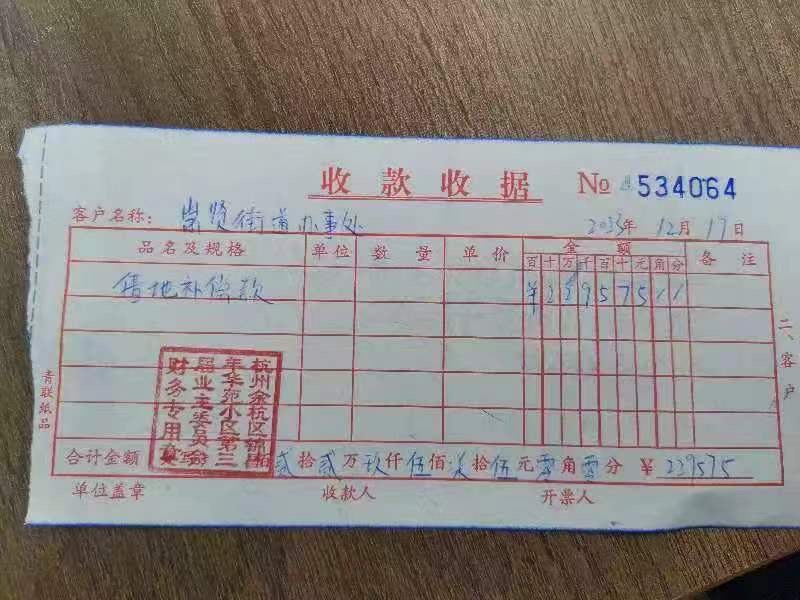 收款收据 № 534064
客户名称： 崇贤街道办事处 2023年12月19日
品名及规格 单位 数量 单价 金额 备注
百 十 万 仟 百 十 元 角 分
借地补偿款 ¥ 2 2 9 5 7 5 / /
二、客户
青联纸品
杭州余杭区锦昌
年华苑小区第三
届业主委员会
财务专用章
合计金额 贰拾贰万玖仟伍佰柒拾伍元零角零分 ¥ 229575
单位盖章 收款人 开票人